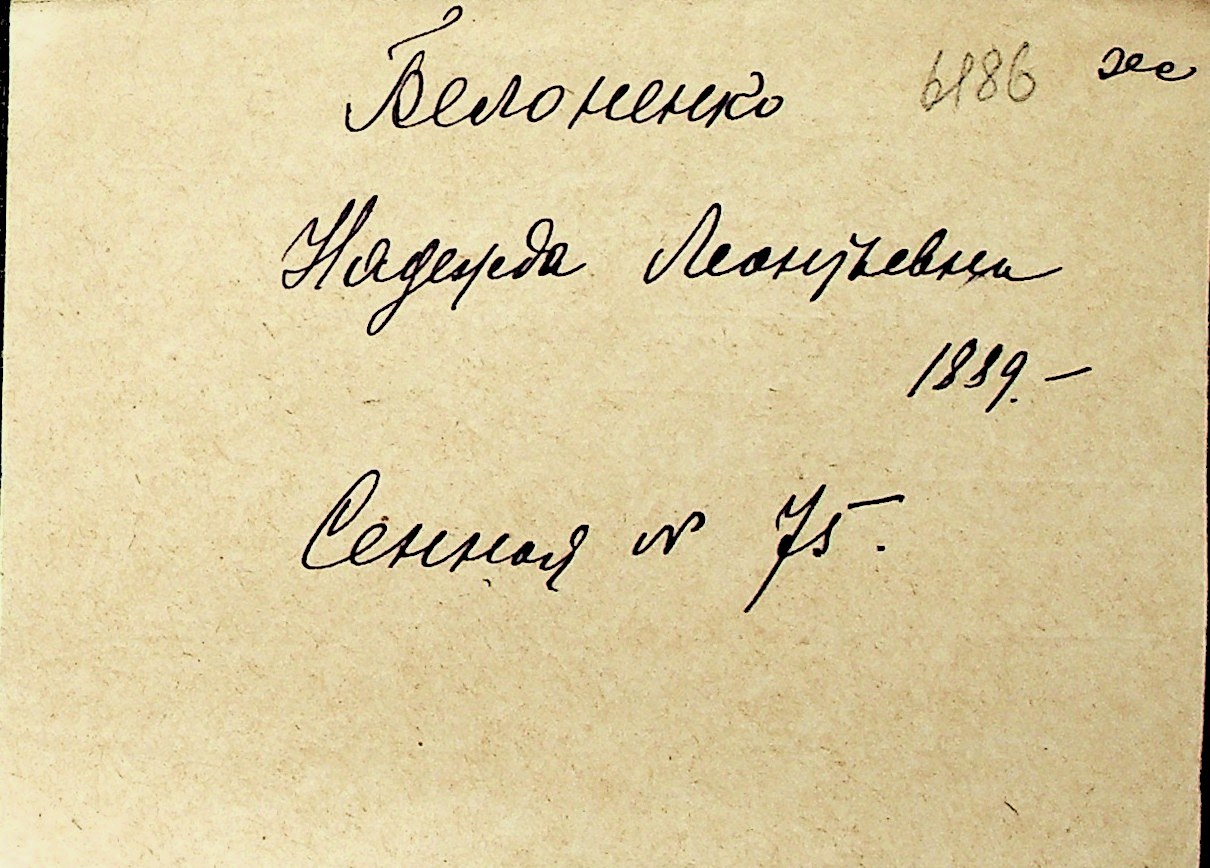 Белоненко 6186 же
Надежда Леонтьевна
1889. –
Сенная № 75.